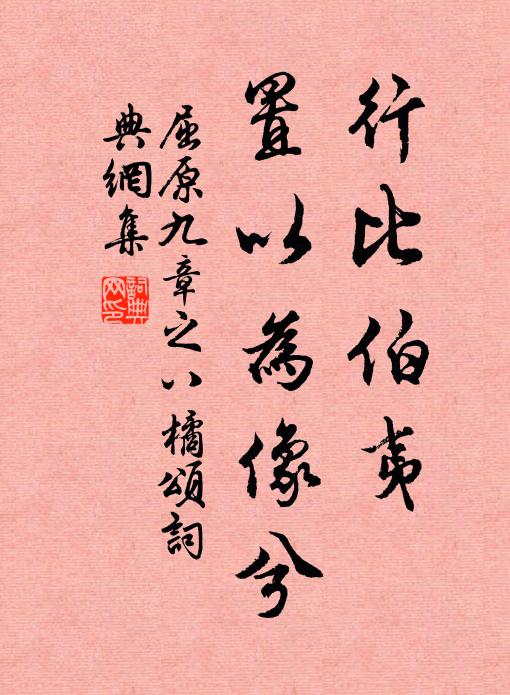 行比伯夷
置以為像兮
屈原九章之八橘頌詞
典網集
詞典网印